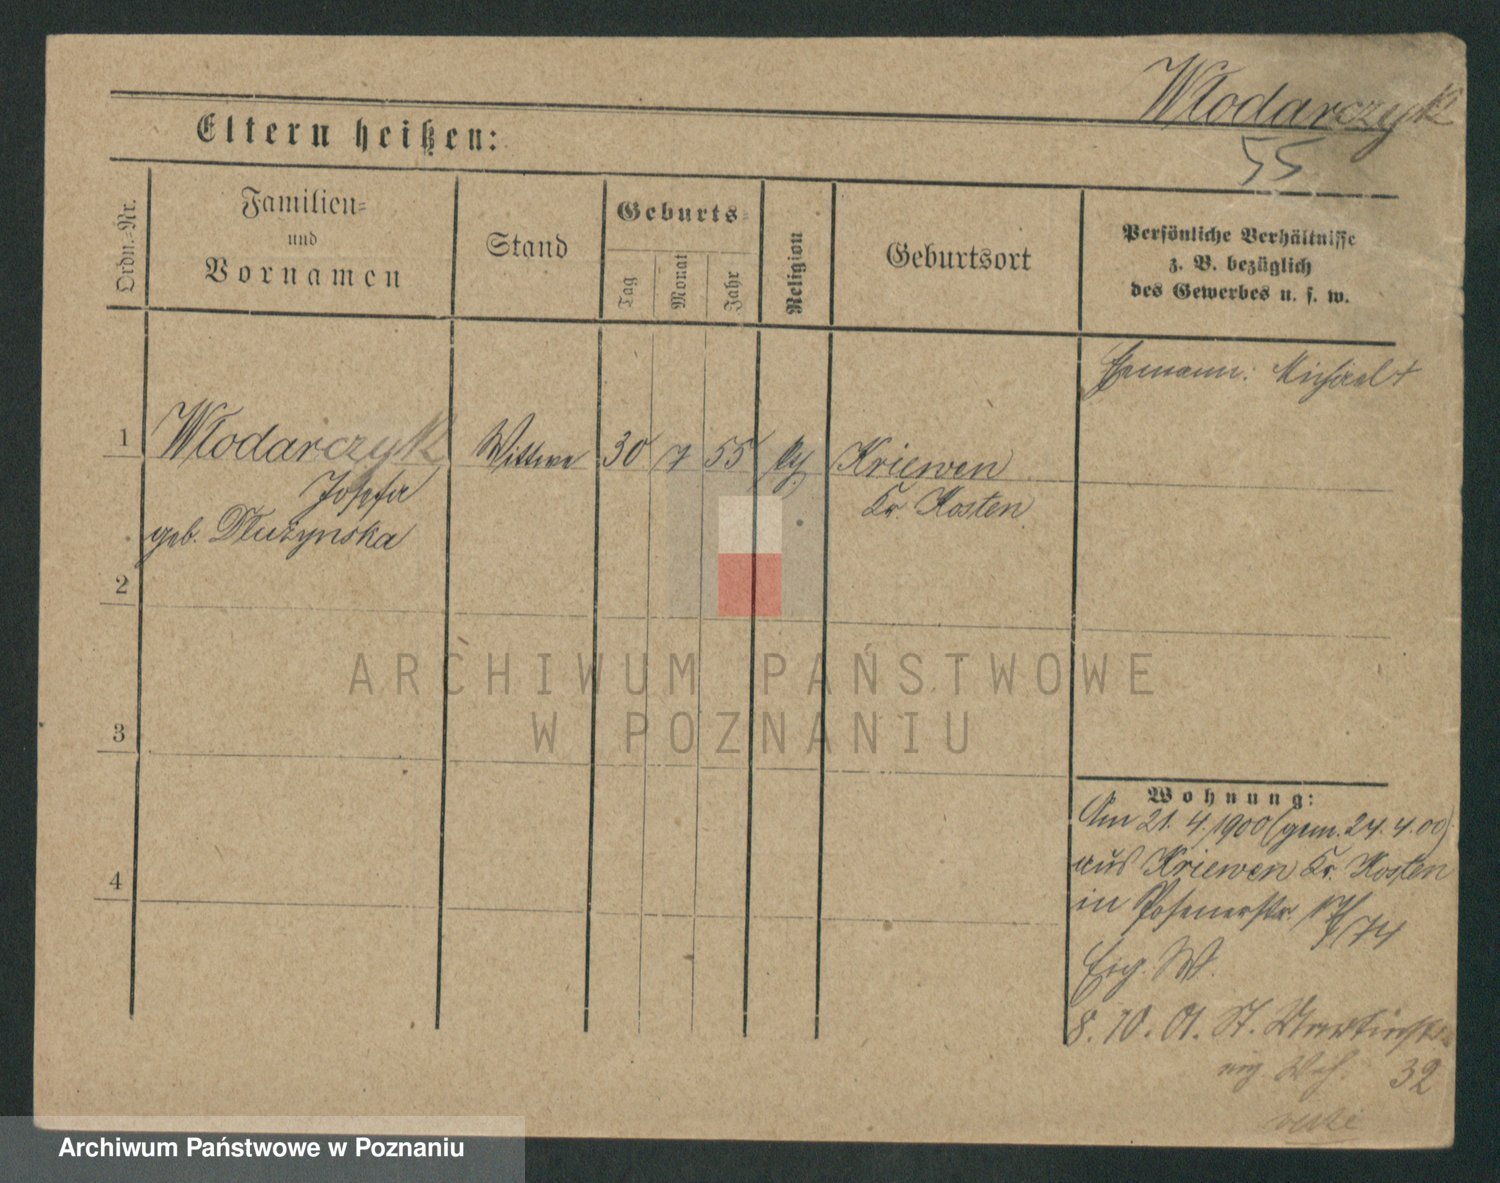 Włodarczyk
55
Eltern heißen:
Ordn.-Nr.
Familien-
und
Vornamen
Stand
Geburts-
Tag
Monat
Jahr
Religion
Geburtsort
Persönliche Verhältnisse
z. B. bezüglich
des Gewerbes u. s. w.
Ehemann: Michael +
1 Włodarczyk Wittwe 30 7 55 Kriewen
Josefa Kr Kosten
geb. Dłużynska
2
3
4
Wohnung:
Am 21. 4. 1900 (gem. 24. 4. 00)
aus Kriewen Kr. Kosten
in Posenerstr. 74
Eig. W.
8. 10. 01. St. Martinstr.
eig. 32
ARCHIWUM PAŃSTWOWE
W POZNANIU
Archiwum Państwowe w Poznaniu